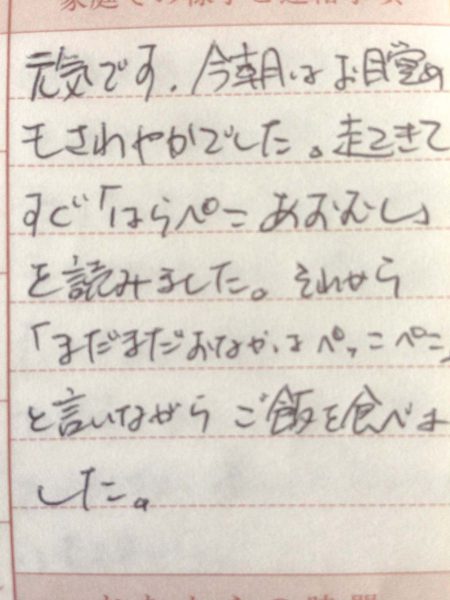 家庭での様子と連絡事項
元気です。今朝はお目覚め
もさわやかでした。起きてきて
すぐ「はらぺこあおむし」
を読みました。それから
「まだまだおなかはぺっこぺこ」
と言いながらご飯を食べま
した。